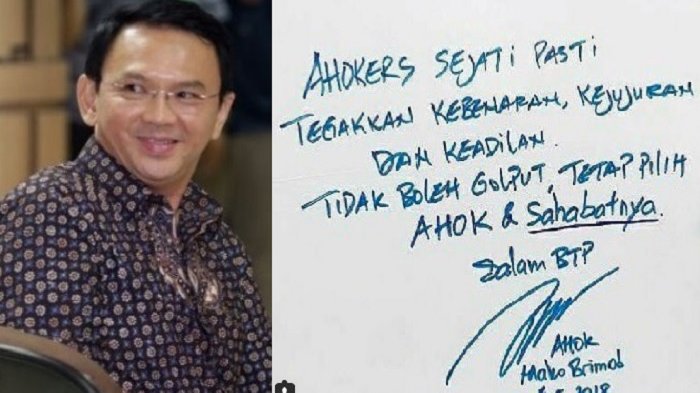 AHOKERS SEJATI PASTI
TEGAKKAN KEBENARAN, KEJUJURAN
DAN KEADILAN.
TIDAK BOLEH GOLPUT, TETAP PILIH
AHOK & Sahabatnya.
Salam BTP
AHOK
Mako Brimob
2018